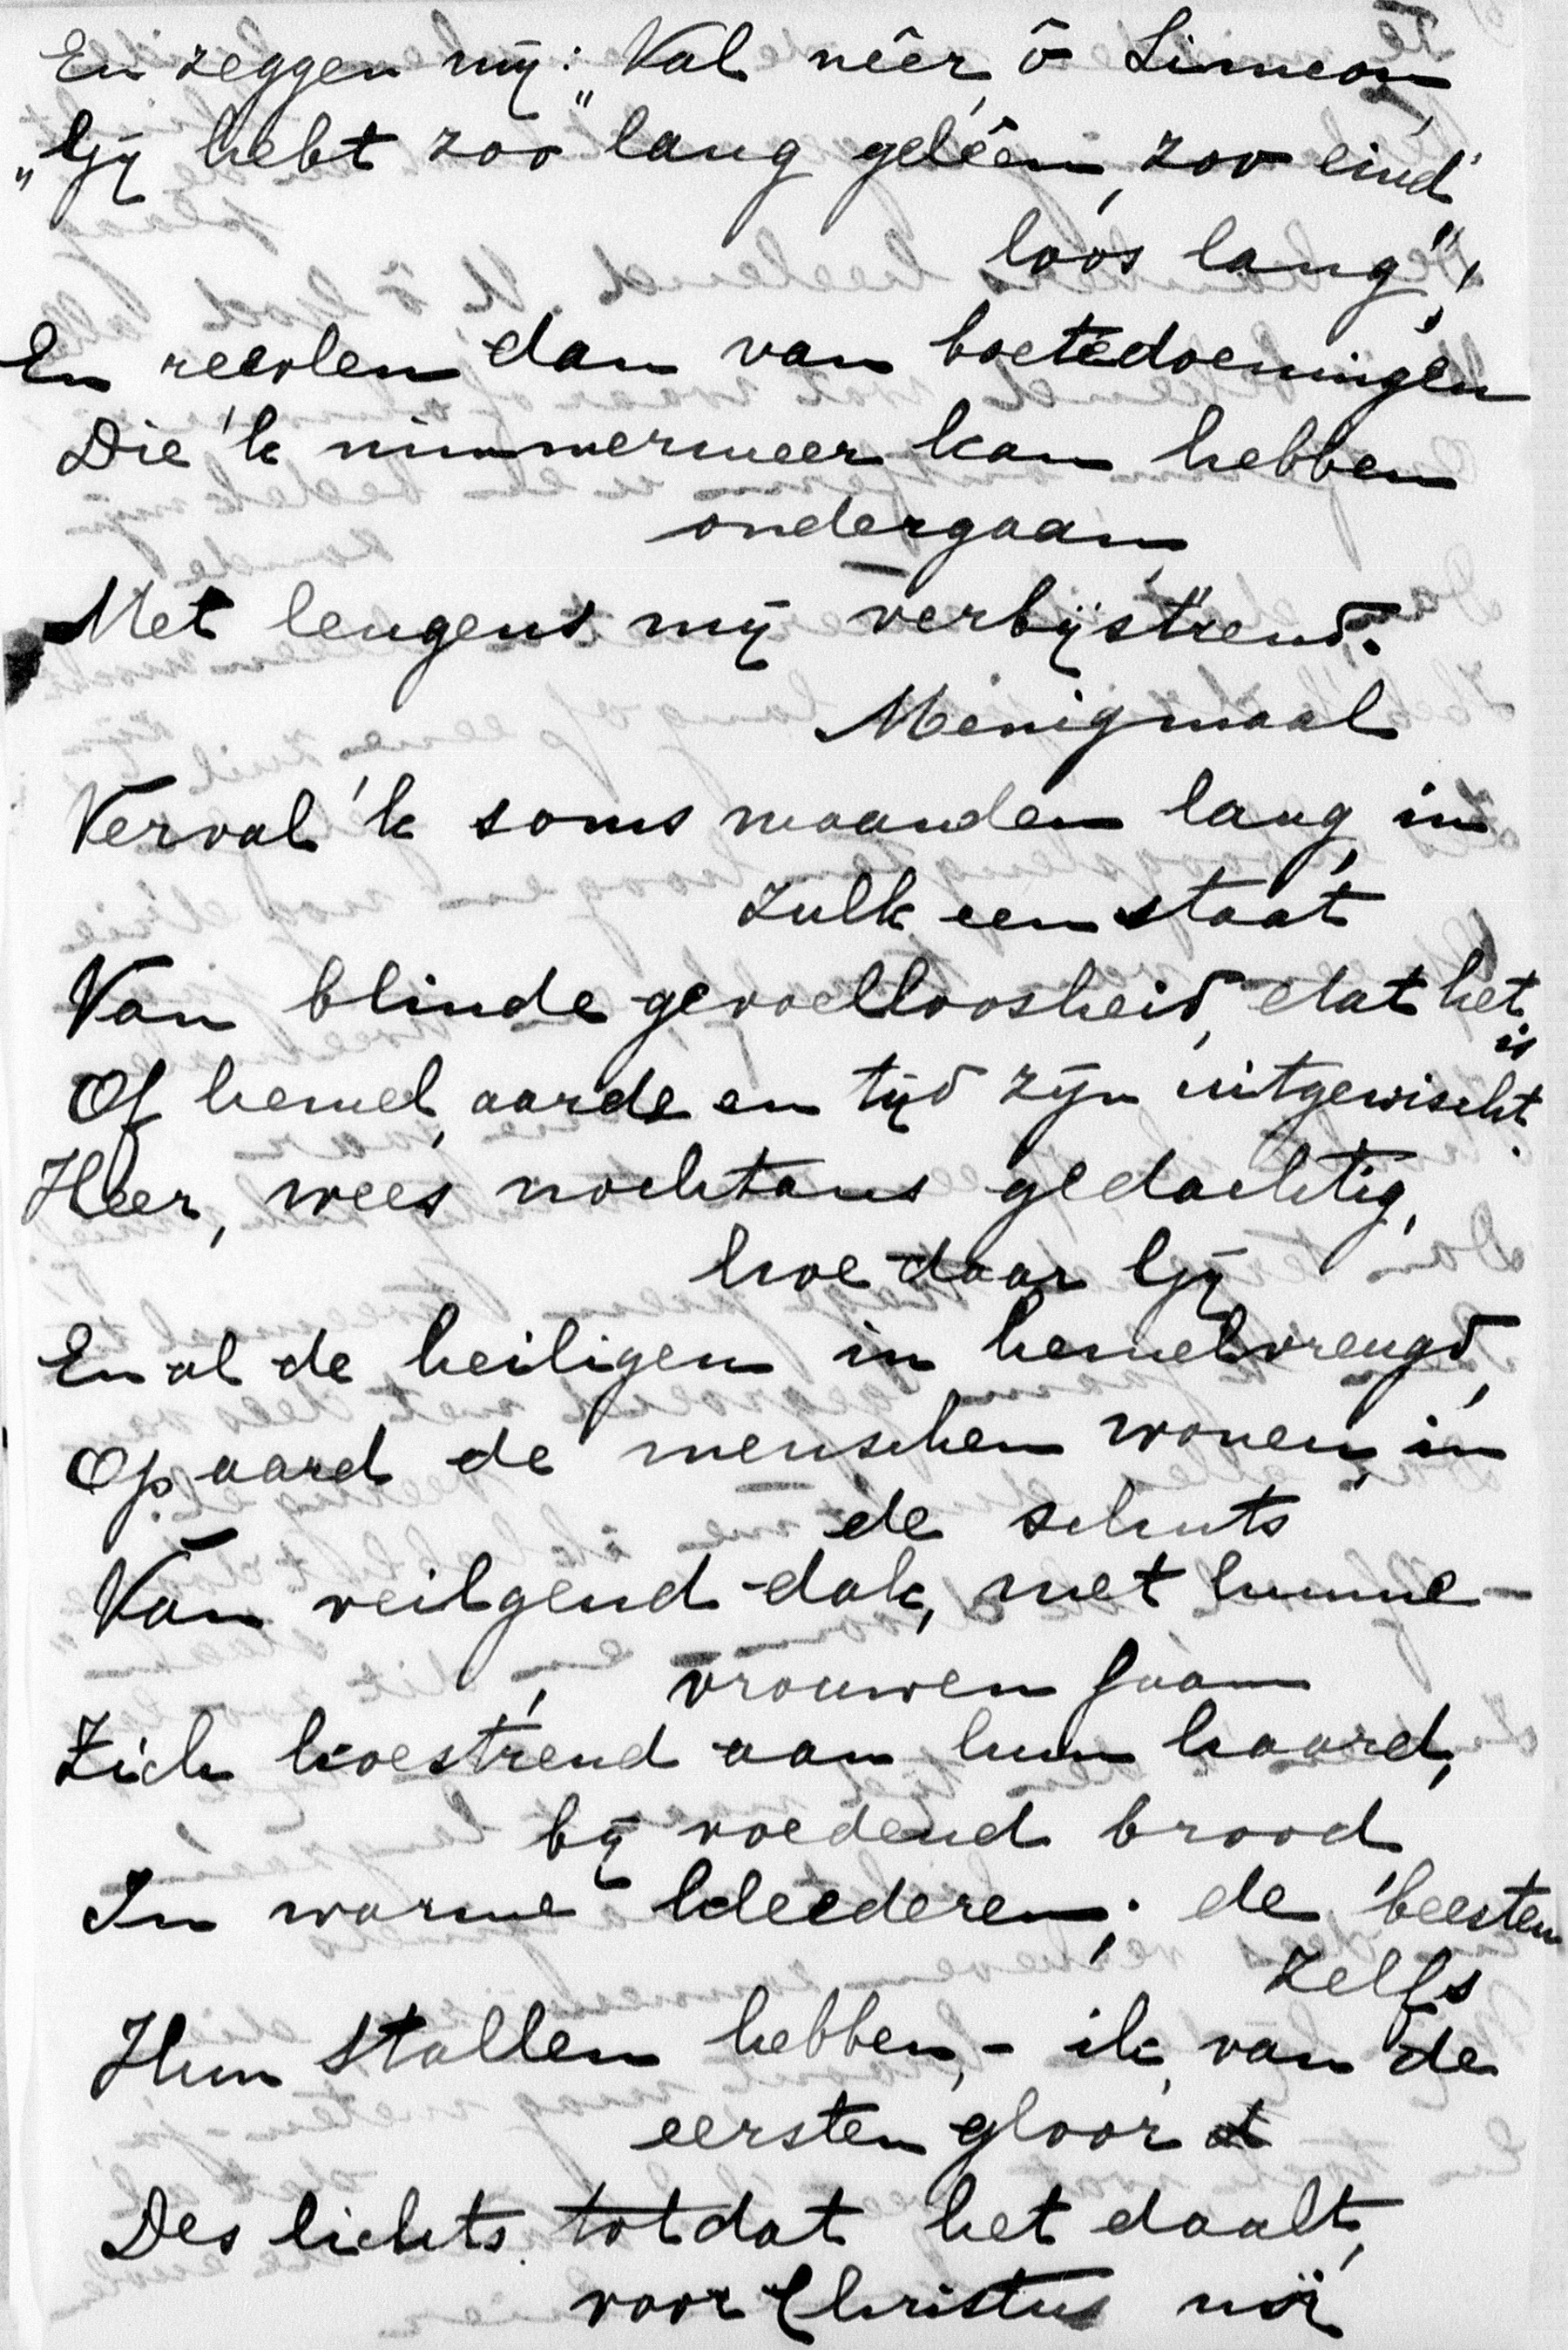 En zeggen mij: „Val nêer, ô Simeon,
„Gij hebt zoo lang gelêen, zoo eind'
loos lang",
En reevlen dan van boetedoeningen
Die 'k nimmermeer kan hebben
ondergaan,
Met leugens mij verbijst'rend.
Menigmaal
Verval 'k soms maanden lang, in
zulk een staat
Van blinde gevoelloosheid, dat het
is
Of hemel, aarde en tijd zijn uitgewischt.
Heer, wees nochtans gedachtig,
hoe daar Gij
En al de heiligen in hemelvreugd,
Op aard de menschen wonen, in
de schuts
Van veilgend dak, met hunne
vrouwen saam
Zich koest'rend aan hun haard,
bij voedend brood
In warme kleederen; de beesten
zelfs
Hun stallen hebben, - ik, van de
eersten gloor
Des lichts totdat het daalt,
voor Christus mij